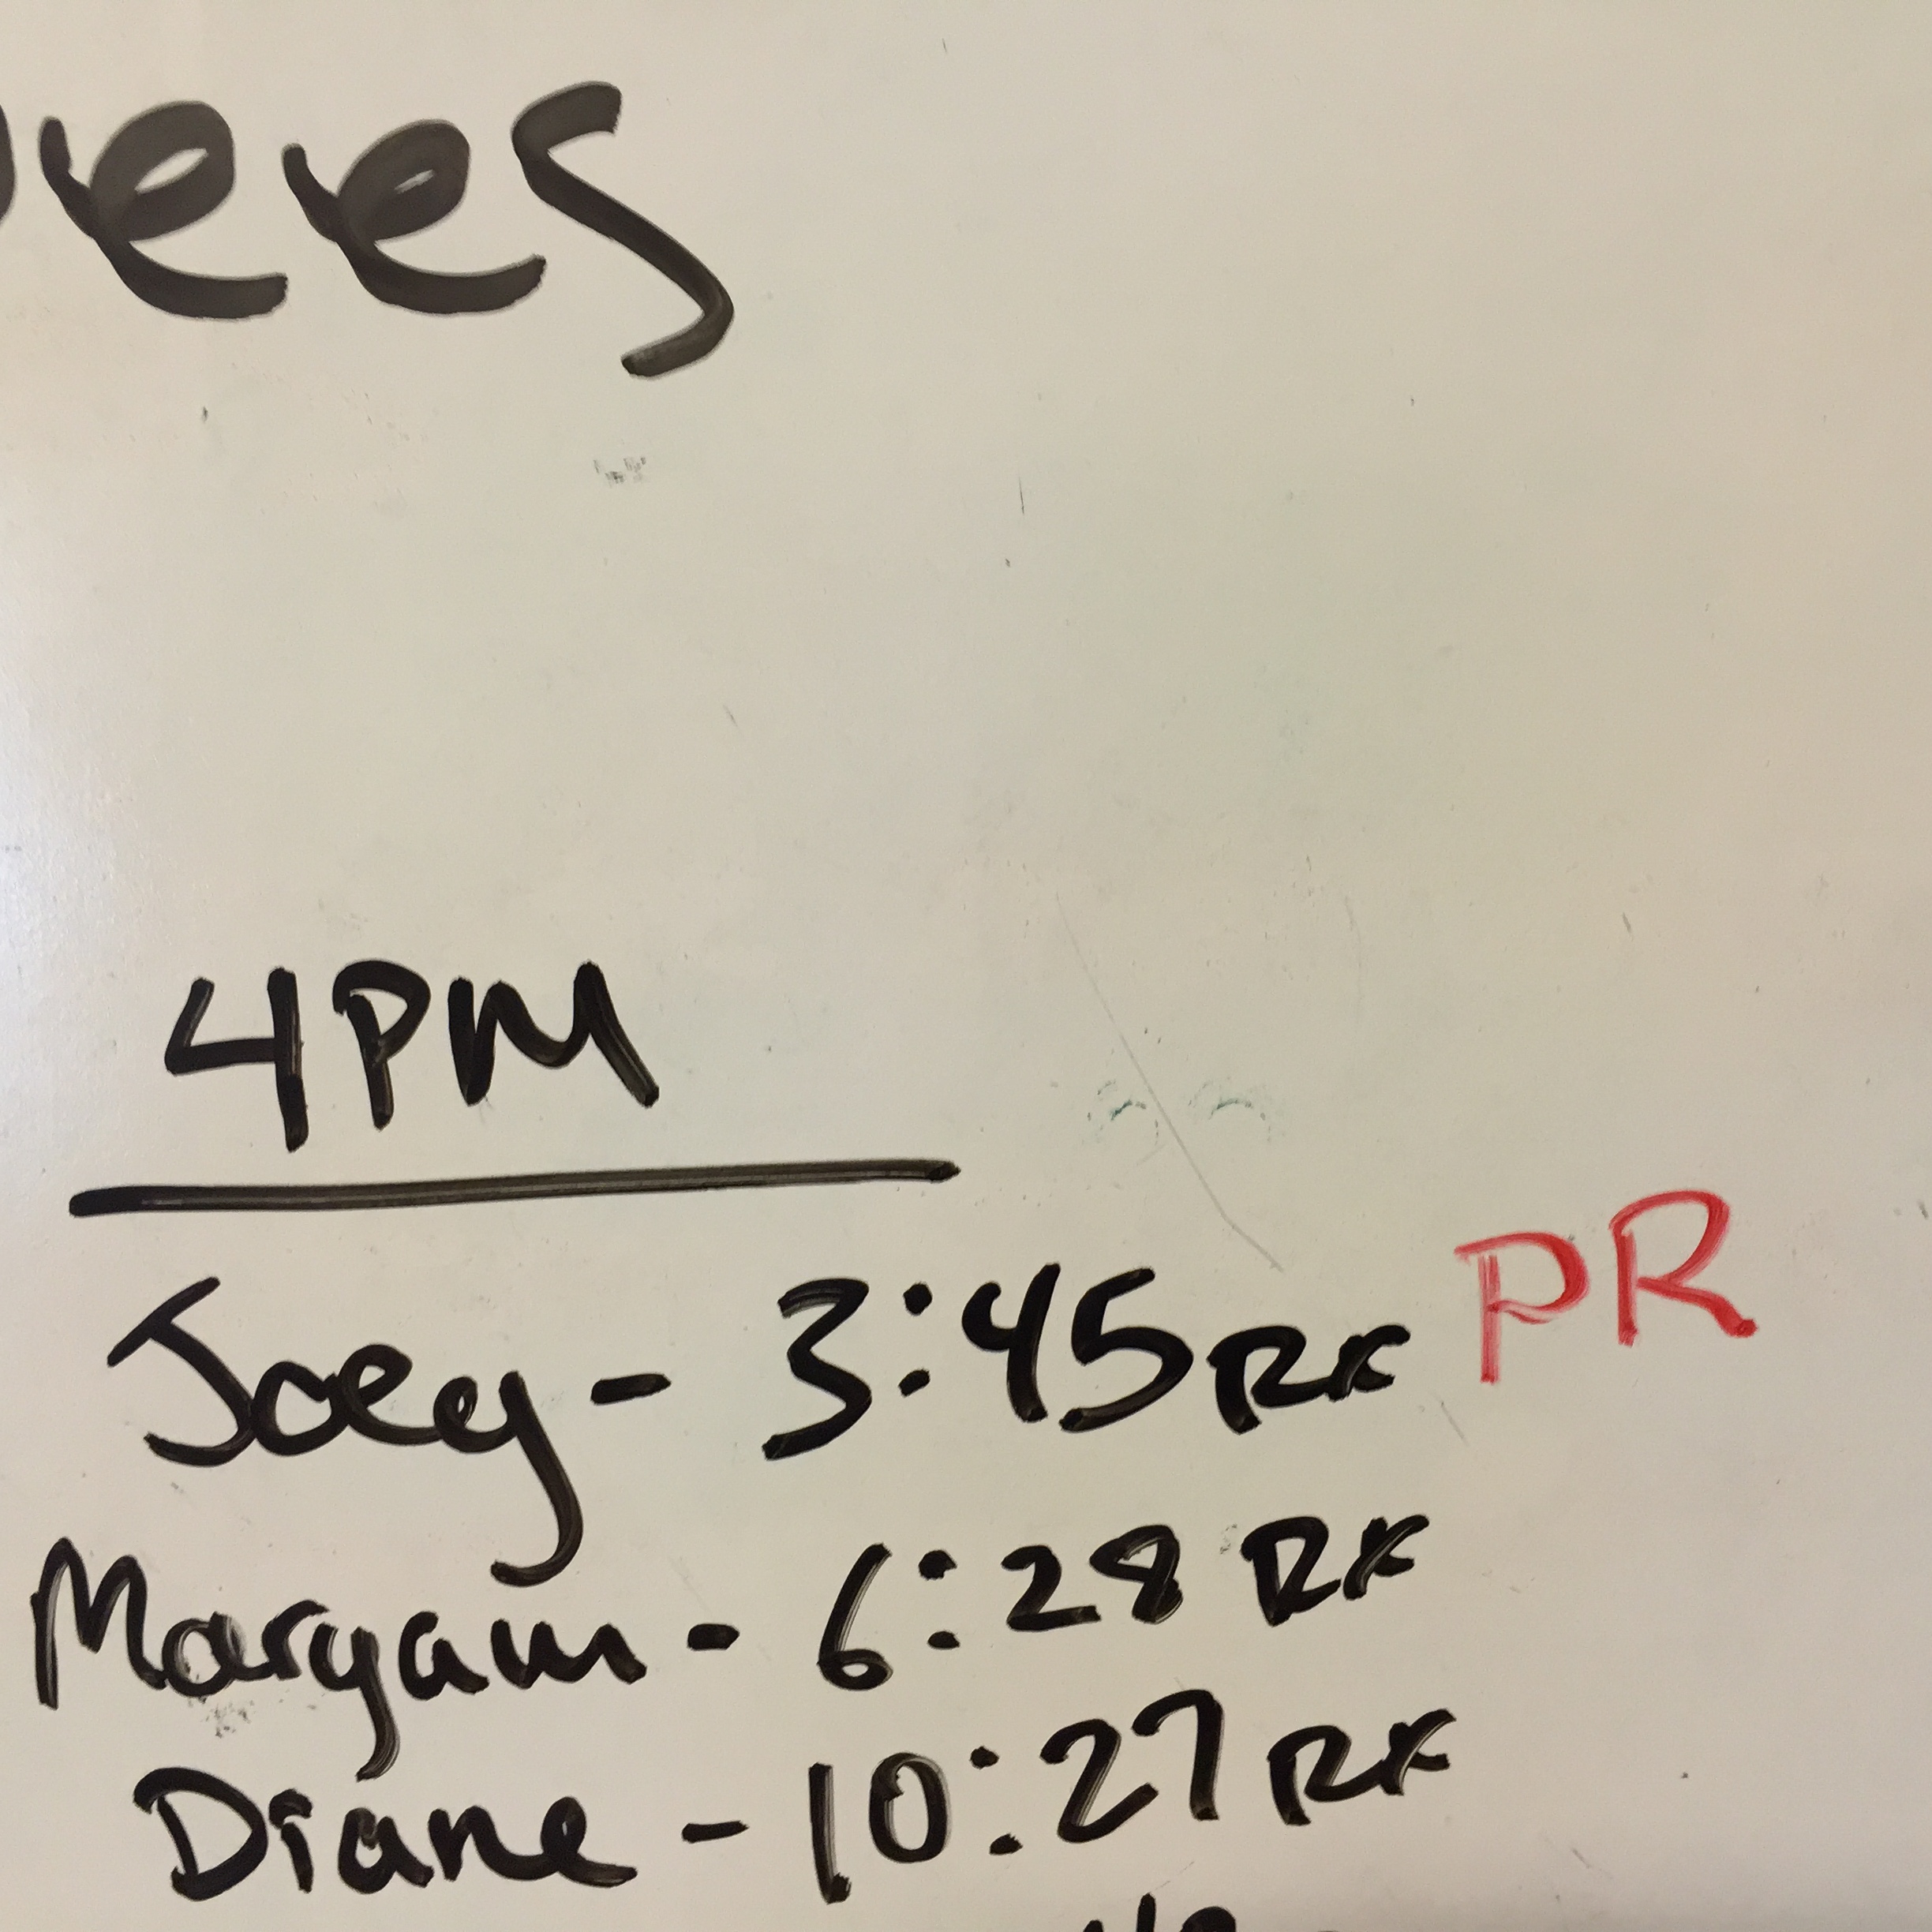 4PM
Joey - 3:45 RX PR
Maryam - 6:28 RX
Diane - 10:27 RX